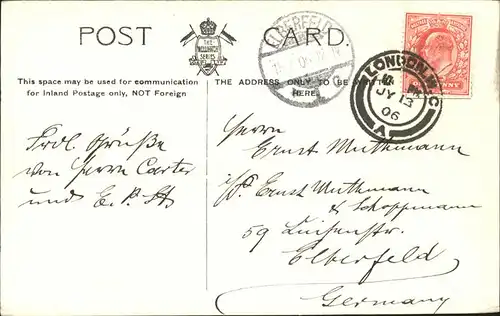 POST CARD.
THE
WELLINGTON
SERIES
This space may be used for communication
for Inland Postage only, NOT Foreign
THE ADDRESS ONLY TO BE
HERE.
ELBERFELD
LONDON W.C
JY 13
06
A
Frdl. Grüße
von Herrn Carter
und E. P.
Herrn
Ernst Muthmann
Ernst Muthmann
& Schoppmann
59 Luisenstr.
Elberfeld
Germany